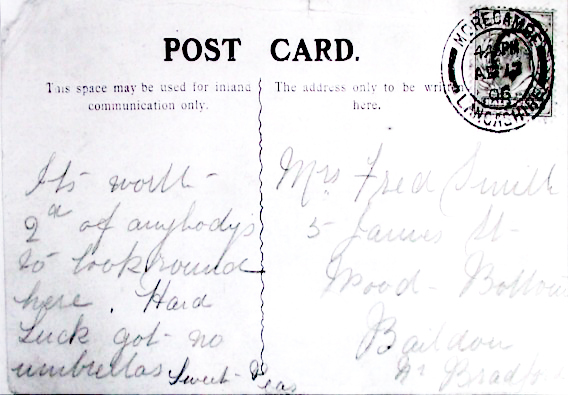 POST CARD.
This space may be used for inland
communication only.
The address only to be written
here.
MORECAMBE
4.45PM
AP 17
06
LANCASHIRE
Its worth
2d of anybody's
to look round
here. Hard
Luck got no
umbrellas Sweet Peas
Mrs Fred Smith
5 James St
Wood Bottom
Baildon
Nr Bradford